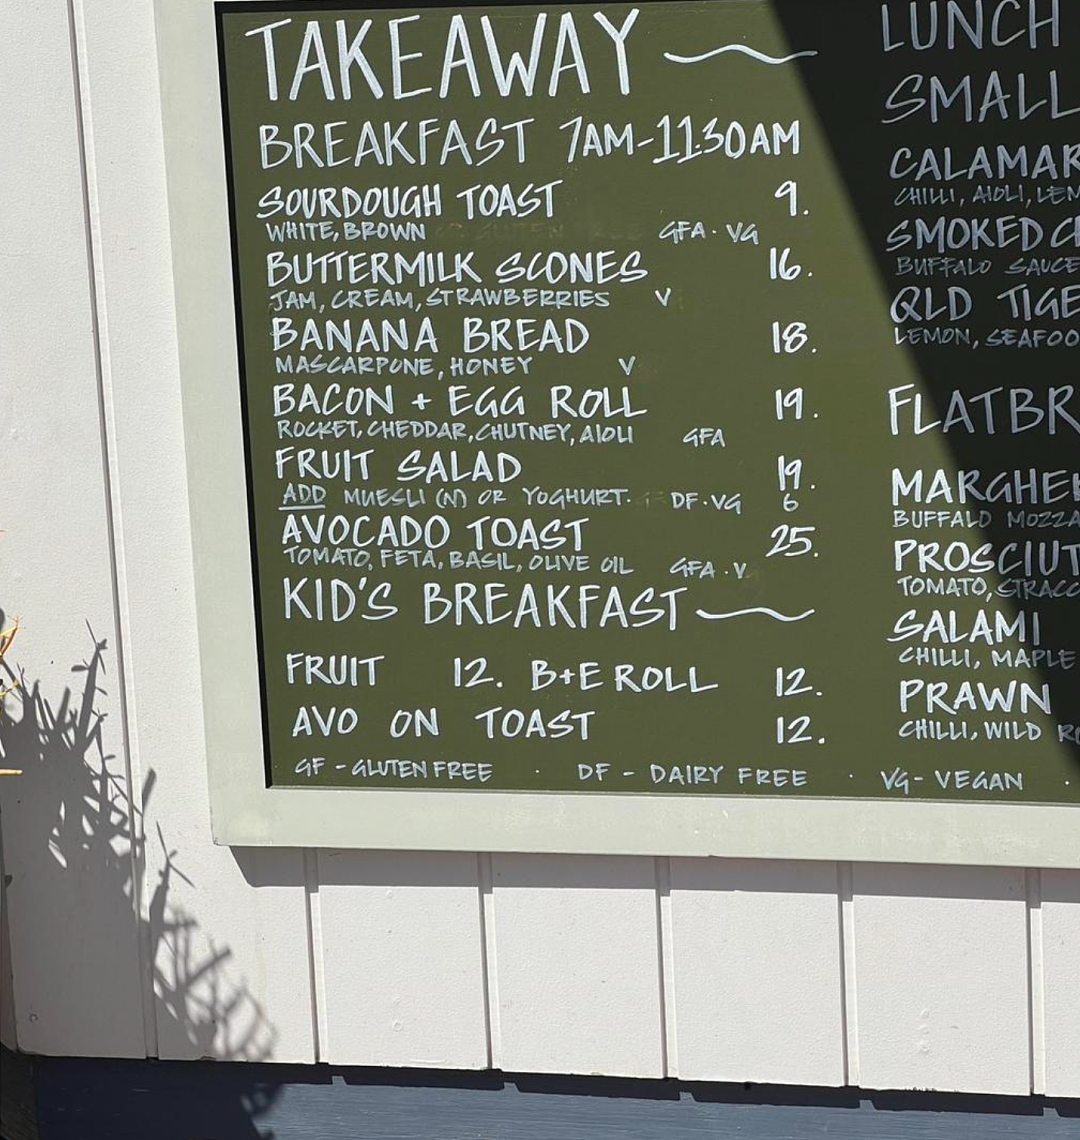 TAKEAWAY
BREAKFAST 7AM-11:30AM
SOURDOUGH TOAST 9.
WHITE, BROWN GFA · VG
BUTTERMILK SCONES 16.
JAM, CREAM, STRAWBERRIES V
BANANA BREAD 18.
MASCARPONE, HONEY V
BACON + EGG ROLL 19.
ROCKET, CHEDDAR, CHUTNEY, AIOLI GFA
FRUIT SALAD 19.
ADD MUESLI (N) OR YOGHURT. DF · VG 6
AVOCADO TOAST 25.
TOMATO, FETA, BASIL, OLIVE OIL GFA · V
KID'S BREAKFAST
FRUIT 12. B+E ROLL 12.
AVO ON TOAST 12.
GF - GLUTEN FREE · DF - DAIRY FREE · VG - VEGAN ·
LUNCH
SMALL
CALAMAR
CHILLI, AIOLI, LEM
SMOKED C
BUFFALO SAUCE
QLD TIGE
LEMON, SEAFOO
FLATBR
MARGHE
BUFFALO MOZZA
PROSCIUT
TOMATO, STRACC
SALAMI
CHILLI, MAPLE
PRAWN
CHILLI, WILD RO